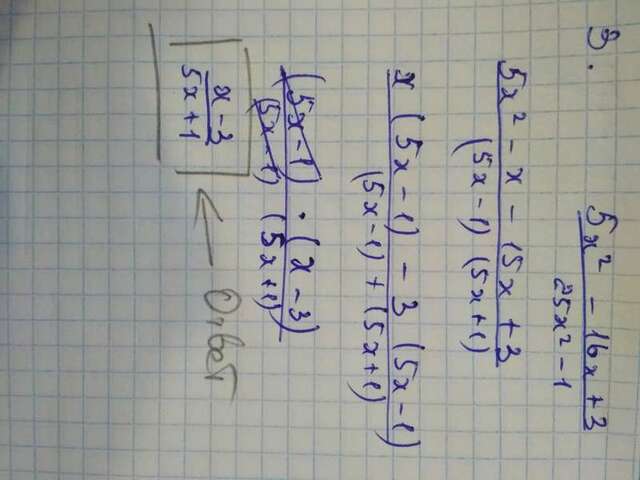 3.
5x² - 16x + 3
25x² - 1
5x² - x - 15x + 3
(5x - 1) (5x + 1)
x (5x - 1) - 3 (5x - 1)
(5x - 1) + (5x + 1)
(5x - 1) · (x - 3)
(5x - 1) (5x + 1)
x - 3
5x + 1
← Ответ